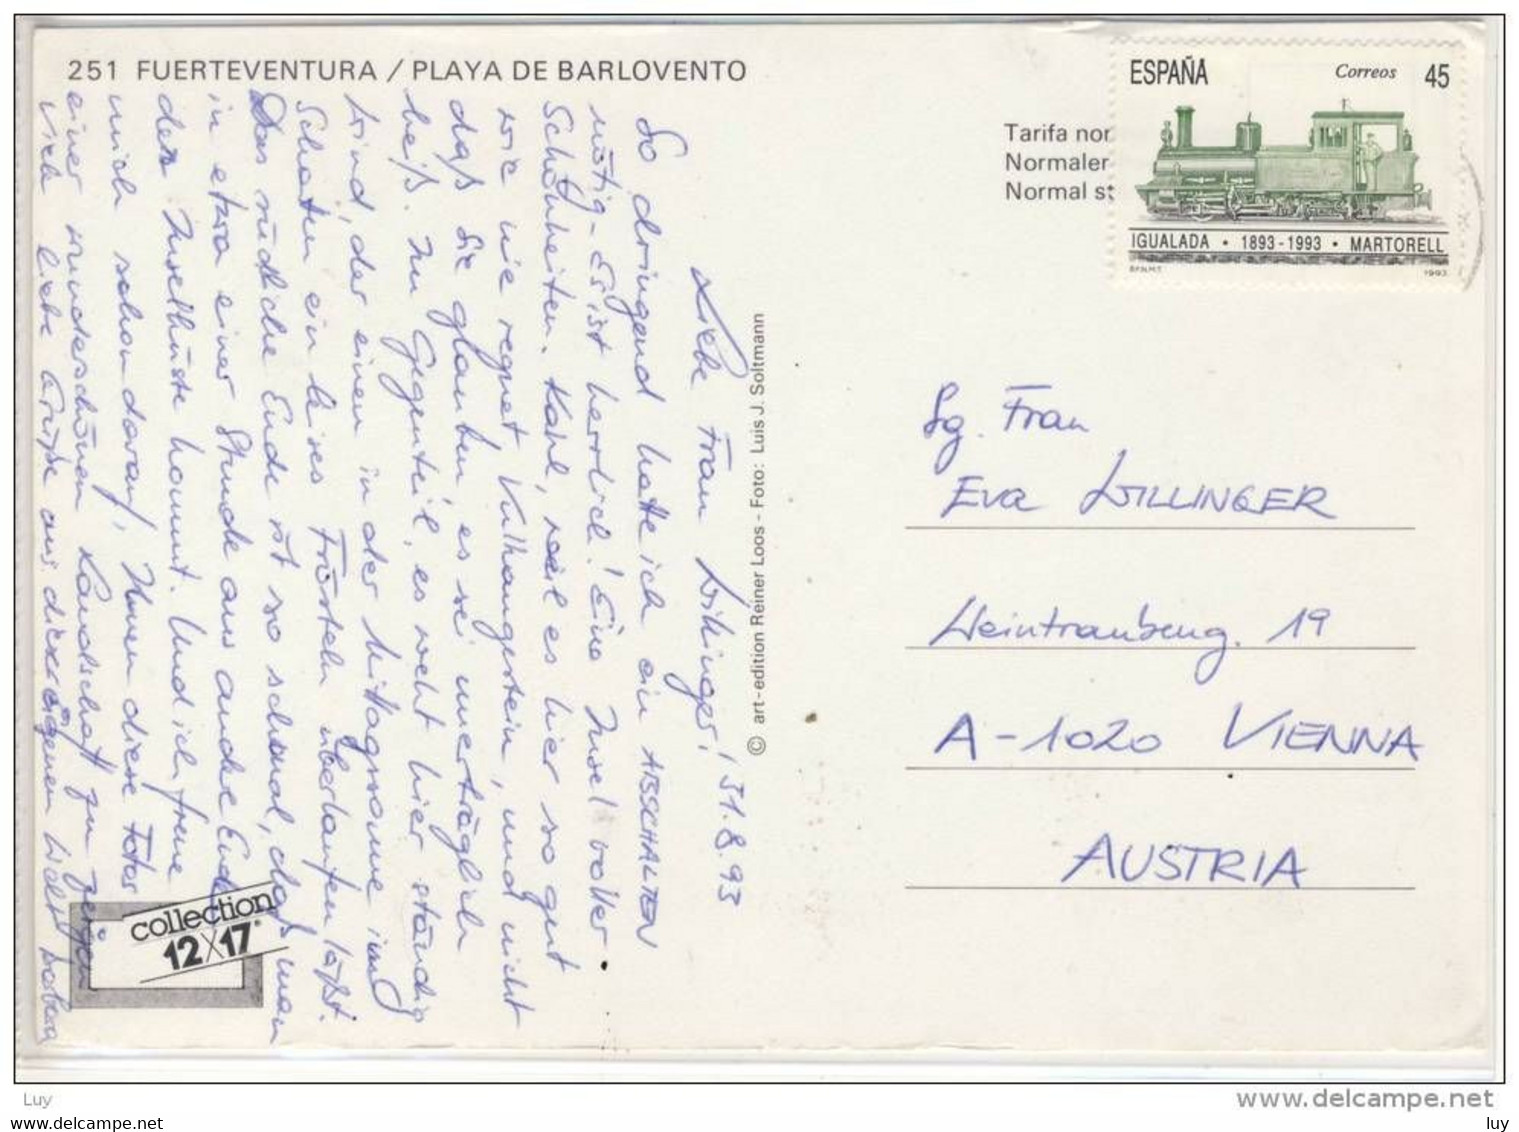 251 FUERTEVENTURA / PLAYA DE BARLOVENTO
Liebe Frau Willinger, 31.8.93
So dringend hatte ich ein ABSCHALTEN
nötig - Es ist herrlich! Eine Insel voller
Schönheiten. Kahl, weil es hier so gut
wie nie regnet, Vulkangestein, und nicht
daß Sie glauben, es sei unerträglich
heiß. Im Gegenteil, es weht hier ständig
Wind, der einem in der Mittagssonne im
Schatten ein leises Frösteln überlaufen läßt.
Das südliche Ende ist so schmal, daß man
in etwa einer Stunde ans andere Ende
der Inselküste kommt. Und ich freue
mich schon darauf, Ihnen diese Fotos
einer wunderschönen Landschaft zu zeigen
Viele liebe Grüße aus dieser eigenen Welt
collection
12X17
© art-edition Reiner Loos - Foto: Luis J. Soltmann
Tarifa nor
Normaler
Normal st
ESPAÑA Correos 45
IGUALADA • 1893-1993 • MARTORELL
1993
Sg. Frau
Eva WILLINGER
Weintraubeng. 19
A-1020 VIENNA
AUSTRIA
Luy
www.delcampe.net
luy